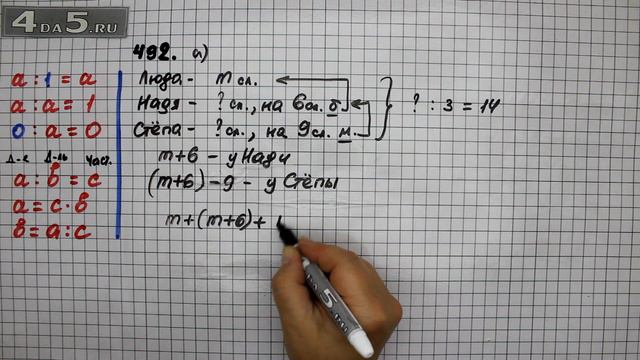 4DA5.RU
492. а)
a : 1 = a
a : a = 1
0 : a = 0
Д-е Д-ль Част.
a : b = c
a = c · b
b = a : c
Люда - m сл.
Надя - ? сл., на 6 сл. б.
Стёпа - ? сл., на 9 сл. м.
? : 3 = 14
m+6 - у Нади
(m+6) - 9 - у Стёпы
m+(m+6)+